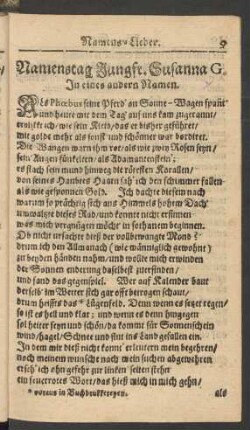 Namens-Lieder. 9
Namenstag Jungfr. Susanna G.
In eines andern Namen.
ALs Phoebus seine Pferd' an Sonne-Wagen spañt'
und heute mit dem Tag' auf uns kam zugerannt/
erblickt ich/ wie sein Kleid/ das er bisher geführet/
mit golde mehr als sonst und schöner war bordiret.
Die Wangen warn ihm rot/ als wie zwey Rosen seyn/
sein' Augen fünkelten/ als Adamantenstein;
es stach sein mund hinweg die rötsten Korallen/
von seines Haubtes Haarn sah' ich den schimmer fallen
als wie gesponnen Gold. Ich dachte diesem nach
warum so prächtig sich ans Himmels hohem Dach'
umwälzte dieses Rad/ und konnte nicht ersinnen
was mich vergnügen möcht' in sothanem beginnen.
Ob nicht ursacher dieß der vollbewangte Mond?
drum ich den Allmanach/ (wie männiglich gewohnt)
zu beyden händen nahm/ und wollte mich erwinden
der Sonnen enderung daselbst zuerfinden/
und fand das gegenspiel. Wer auf Kalender baut
der seh'/ im Wetter sich gar offt betrogen schaut/
drum heissts das * Lügenfeld. Denn wenn es reget regen/
so ist es hell und klar; und wenn es denn hingegen
sol heiter seyn und schön/ da kommt für Sonnenschein
wind/ hagel/ Schnee und sturm ins Land gefallen ein.
In dem mir dieß nicht konnt' erleutern mein begehren/
noch meinem wunsche nach mein suchen abgewehren
ersieh' ich ohn gefehr zur linken seiten stehen
ein feuerrotes Wort/ das hieß mich in mich gehn/
* voraus in Buchdruckereyen. als